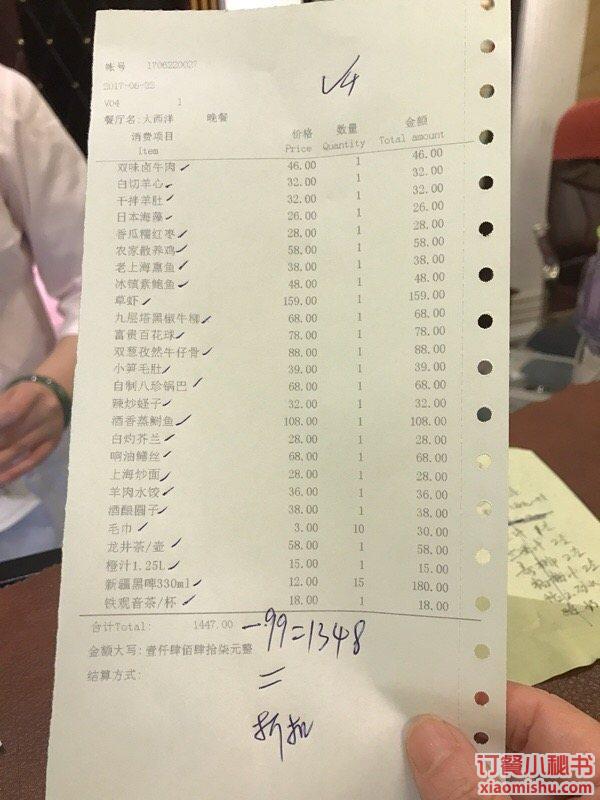 帐号 1706220027
2017-06-22
V04 1
V4
餐厅名:大西洋 晚餐
消费项目 价格 数量 金额
Item Price Quantity Total amount
双味卤牛肉 46.00 1 46.00
白切羊心 32.00 1 32.00
干拌羊肚 32.00 1 32.00
日本海藻 26.00 1 26.00
香瓜糯红枣 28.00 1 28.00
农家散养鸡 58.00 1 58.00
老上海熏鱼 38.00 1 38.00
冰镇素鲍鱼 48.00 1 48.00
草虾 159.00 1 159.00
九层塔黑椒牛柳 68.00 1 68.00
富贵百花球 78.00 1 78.00
双葱孜然牛仔骨 88.00 1 88.00
小笋毛肚 39.00 1 39.00
自制八珍锅巴 68.00 1 68.00
辣炒蛏子 32.00 1 32.00
酒香蒸鲥鱼 108.00 1 108.00
白灼芥兰 28.00 1 28.00
响油鳝丝 68.00 1 68.00
上海炒面 28.00 1 28.00
羊肉水饺 36.00 1 36.00
酒酿圆子 38.00 1 38.00
毛巾 3.00 10 30.00
龙井茶/壶 58.00 1 58.00
橙汁1.25L 15.00 1 15.00
新疆黑啤330ml 12.00 15 180.00
铁观音茶/杯 18.00 1 18.00
合计Total: 1447.00 -99=1348
金额大写:壹仟肆佰肆拾柒元整
结算方式:
=
折扣
订餐小秘书
xiaomishu.com